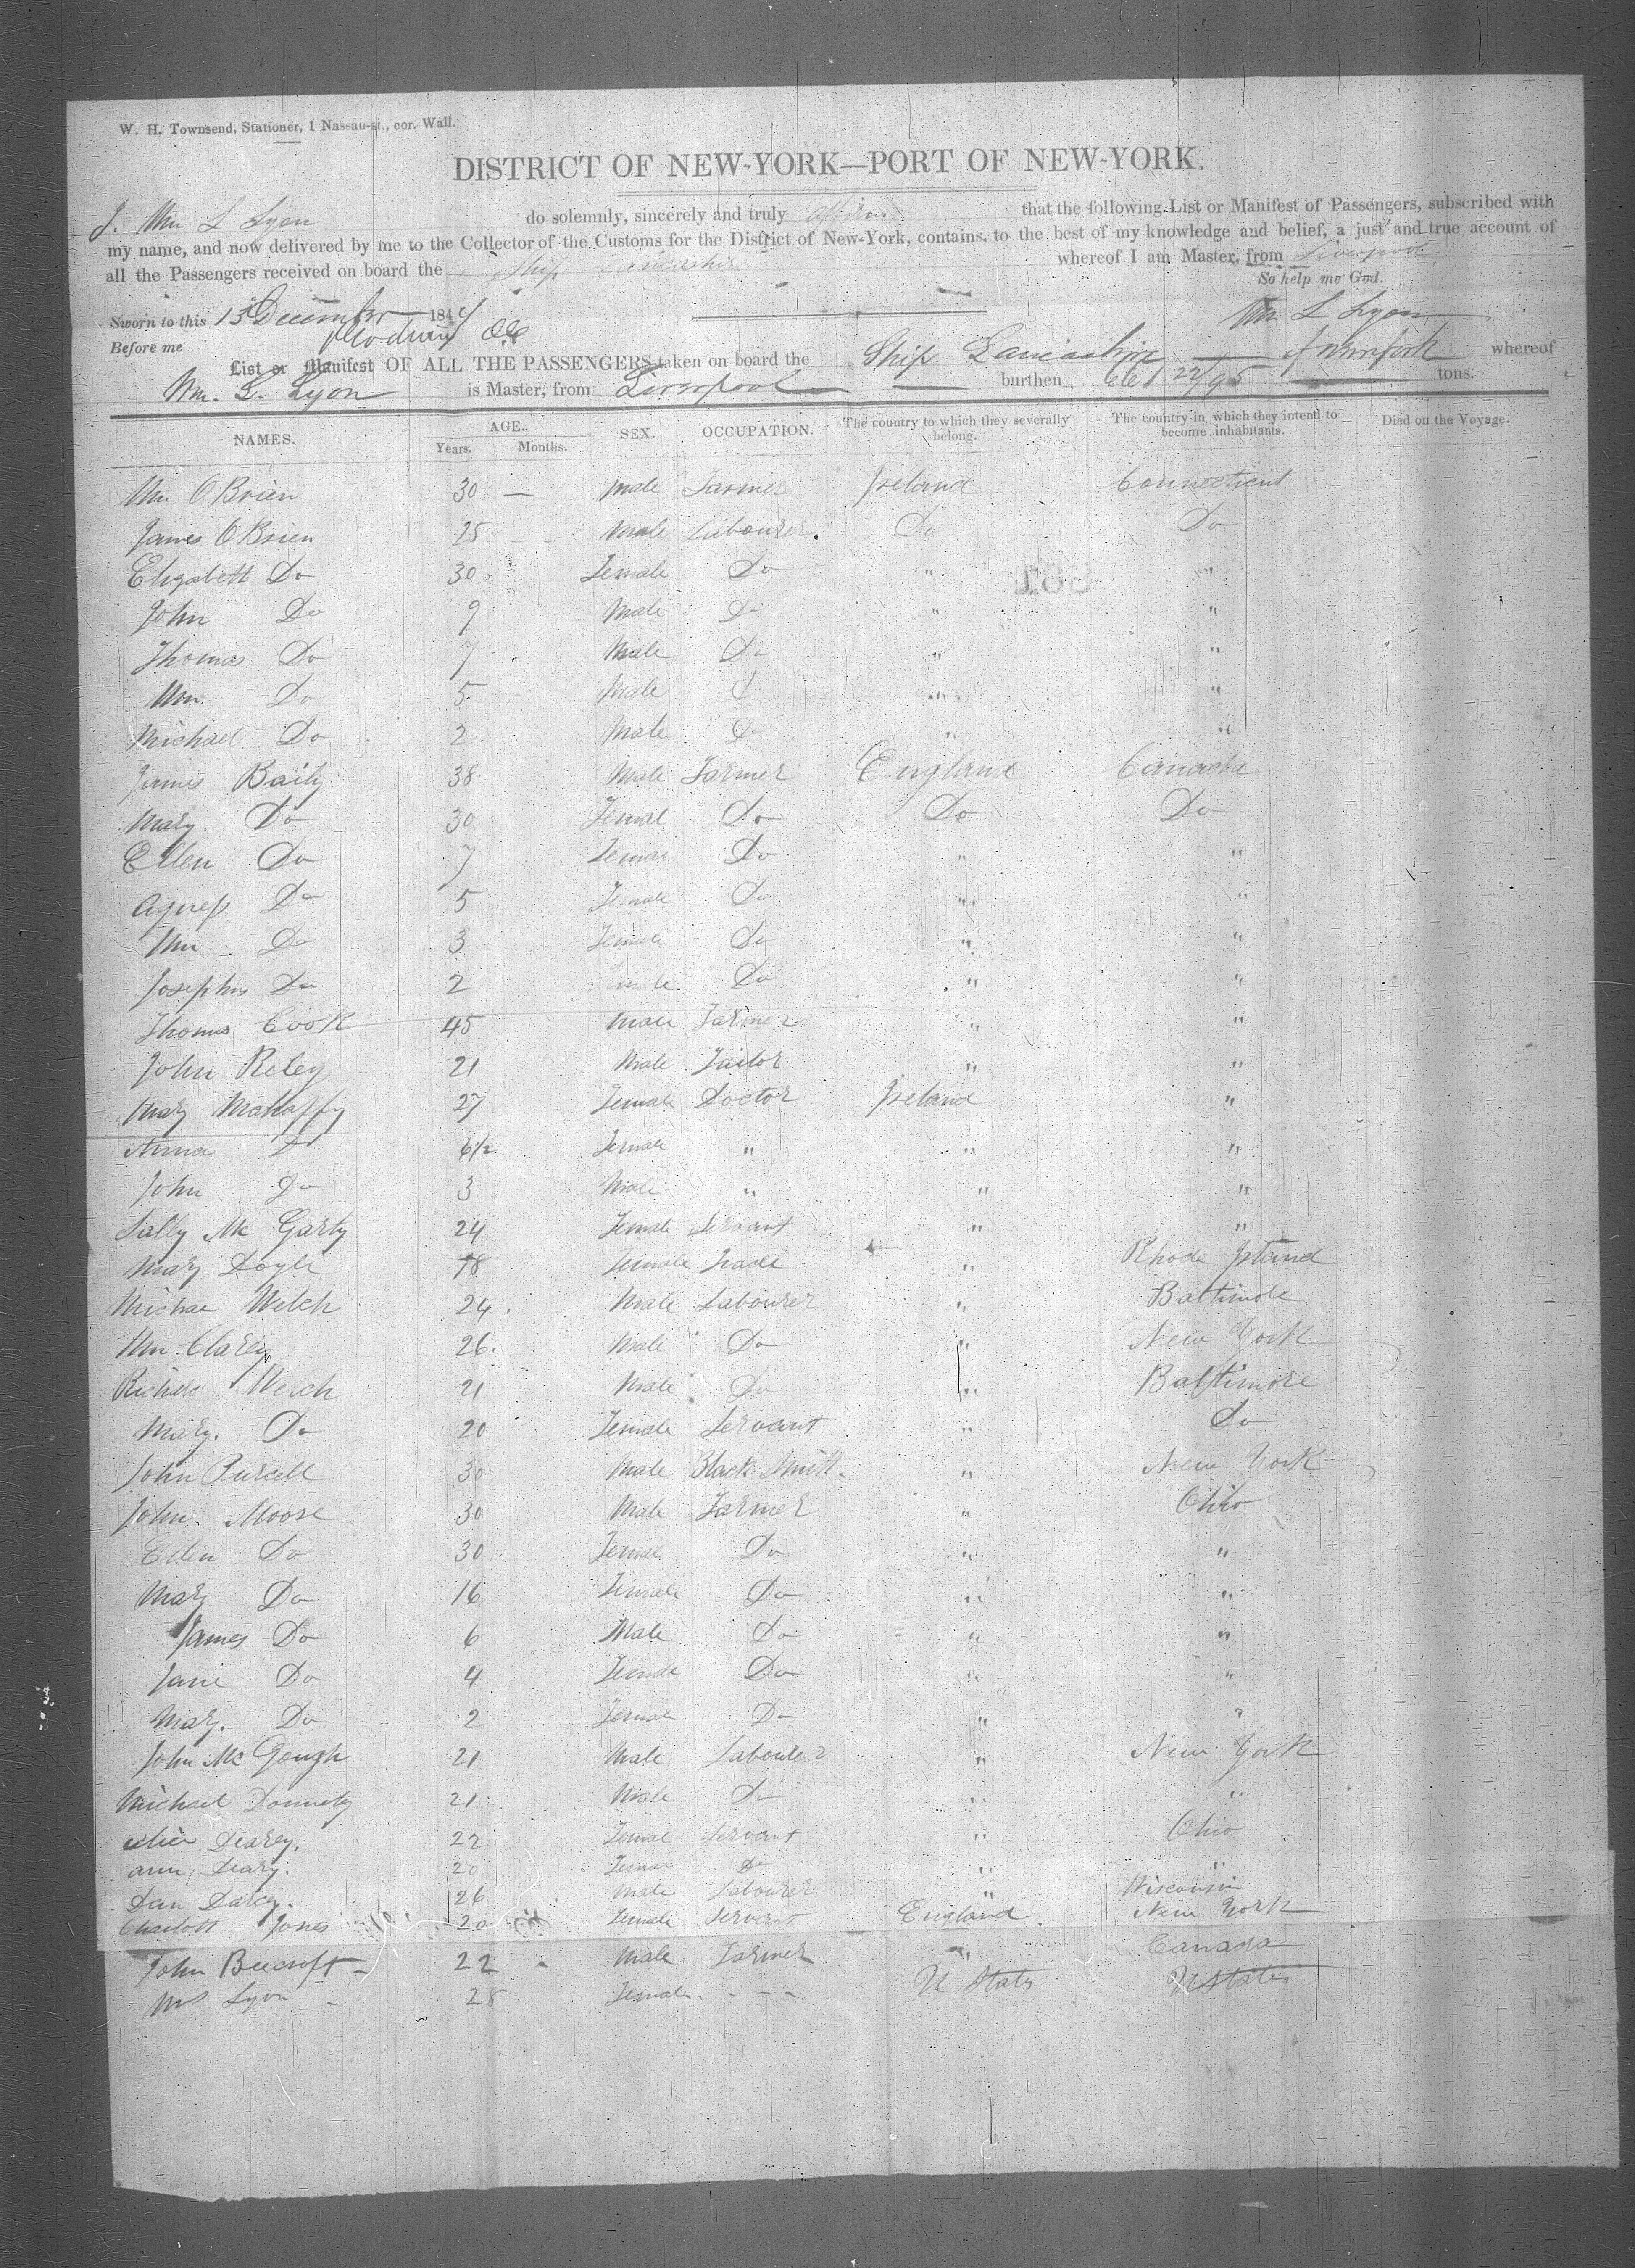 W. H. Townsend, Stationer, 1 Nassau-st., cor. Wall.
DISTRICT OF NEW-YORK—PORT OF NEW-YORK.
I, Wm L Lyon do solemnly, sincerely and truly affirm that the following List or Manifest of Passengers, subscribed with
my name, and now delivered by me to the Collector of the Customs for the District of New-York, contains, to the best of my knowledge and belief, a just and true account of
all the Passengers received on board the Ship Lancashire whereof I am Master, from Liverpool
So help me God.
Sworn to this 13 December 184
Wm L Lyon
Before me
List or Manifest OF ALL THE PASSENGERS taken on board the Ship Lancashire — of whereof
Wm. L. Lyon is Master, from Liverpool burthen 22/95 tons.
NAMES. AGE. SEX. OCCUPATION. The country to which they severally belong. The country in which they intend to become inhabitants. Died on the Voyage.
Years. Months.
Wm O Brien 30 — Male Farmer Ireland Connecticut
James O Brien 25 - - Male Labourer. Do Do
Elizabeth Do 30 Female Do " "
John Do 9 Male Do " "
Thomas Do 7 Male Do " "
Wm. Do 5 Male " "
Michael Do 2 Male Do " "
James Baily 38 Male Farmer England Canada
Mary. Do 30 Femal Do Do Do
Ellen Do 7 Female Do " "
Agness Do 5 Female Do " "
Wm Do 3 Female Do " "
Josephus Do 2 Do " "
Thomas Cook 45 Male Farmer " "
John Riley 21 Male Tailor " "
Mary Mahaffy 27 Female Doctor Ireland "
Anna Do 6½ Female " " "
John Do 3 Male " " "
Sally Mc Garty 24 Female Servant " "
Mary Doyle 18 Female Trade " Rhode Island
Michae Welch 24 Male Labourer " Baltimore
Wm Clarey 26. Male Do " New York
Richard Welch 21 Male Do " Baltimore
Mary. Do 20 Female Servant " Do
John Purcell 30 Male Black Smith. " New York
John. Moore 30 Male Farmer " Ohio
Ellen Do 30 Femal Do " "
Mary Do 16 Female Do " "
James Do 6 Male Do " "
Jane Do 4 Female Do " "
Mary. Do 2 Female Do " "
John Mc Gough 21 Male Labourer " New York
Michael Donnely 21 Male Do " "
Alice Dearey. 22 Female Servant " Ohio
Ann, Deary. 20 Female Do " "
Dan Darcy. 26 Male Labourer " Wisconsin
Charlott Jones 20 Female Servant England. New York
John Beecroft - 22 Male Farmer " Canada
Mrs Lyon - 28 Female. - - - U States U States